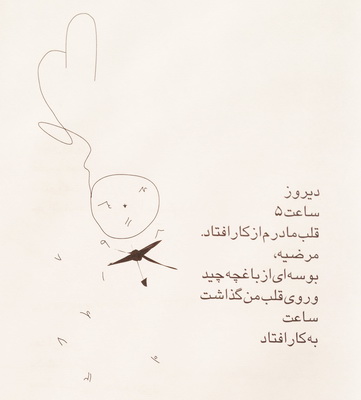 دیروز
ساعت ۵
قلب مادرم از کار افتاد.
مرضیه،
بوسه‌ای از باغچه چید
و روی قلب من گذاشت
ساعت
به کار افتاد